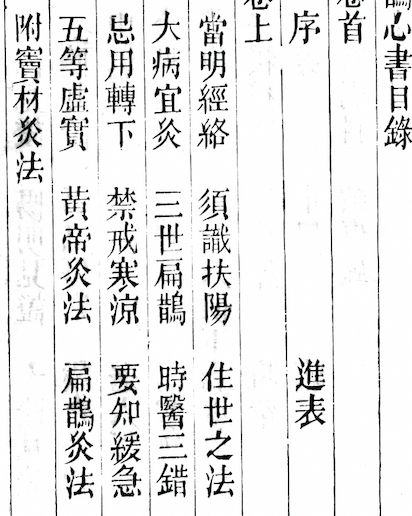 心書目錄
卷首
序 進表
卷上
當明經絡 須識扶陽 住世之法
大病宜灸 三世扁鵲 時醫三錯
忌用轉下 禁戒寒涼 要知緩急
五等虛實 黃帝灸法 扁鵲灸法
附竇材灸法